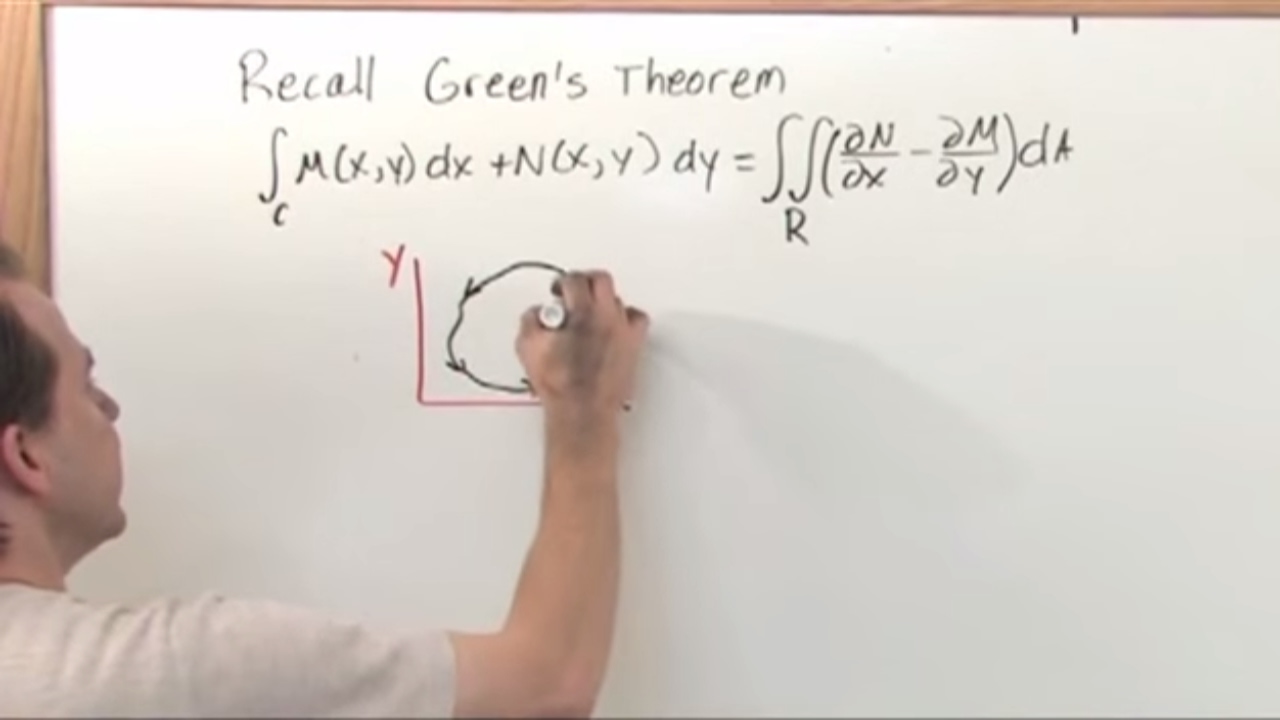 Recall Green's Theorem
∫_C M(x,y) dx + N(x,y) dy = ∬_R (∂N/∂x − ∂M/∂y) dA
Y